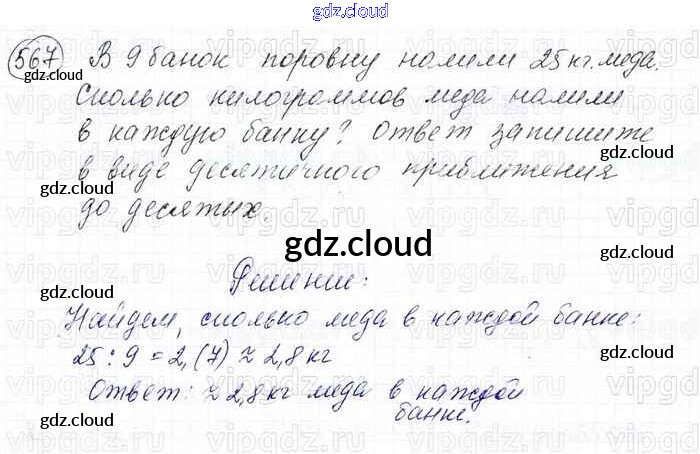 gdz.cloud
567 В 9 банок поровну налили 25 кг. меда.
gdz.cloud
Сколько килограммов меда налили
gdz.cloud
в каждую банку? Ответ запишите
gdz.cloud
в виде десятичного приближения
gdz.cloud
до десятых.
gdz.cloud
Решение:
gdz.cloud
gdz.cloud
Найдем, сколько меда в каждой банке:
25 : 9 = 2,(7) ≈ 2,8 кг
gdz.cloud
Ответ: ≈ 2,8 кг меда в каждой
банке.
gdz.cloud
gdz.cloud